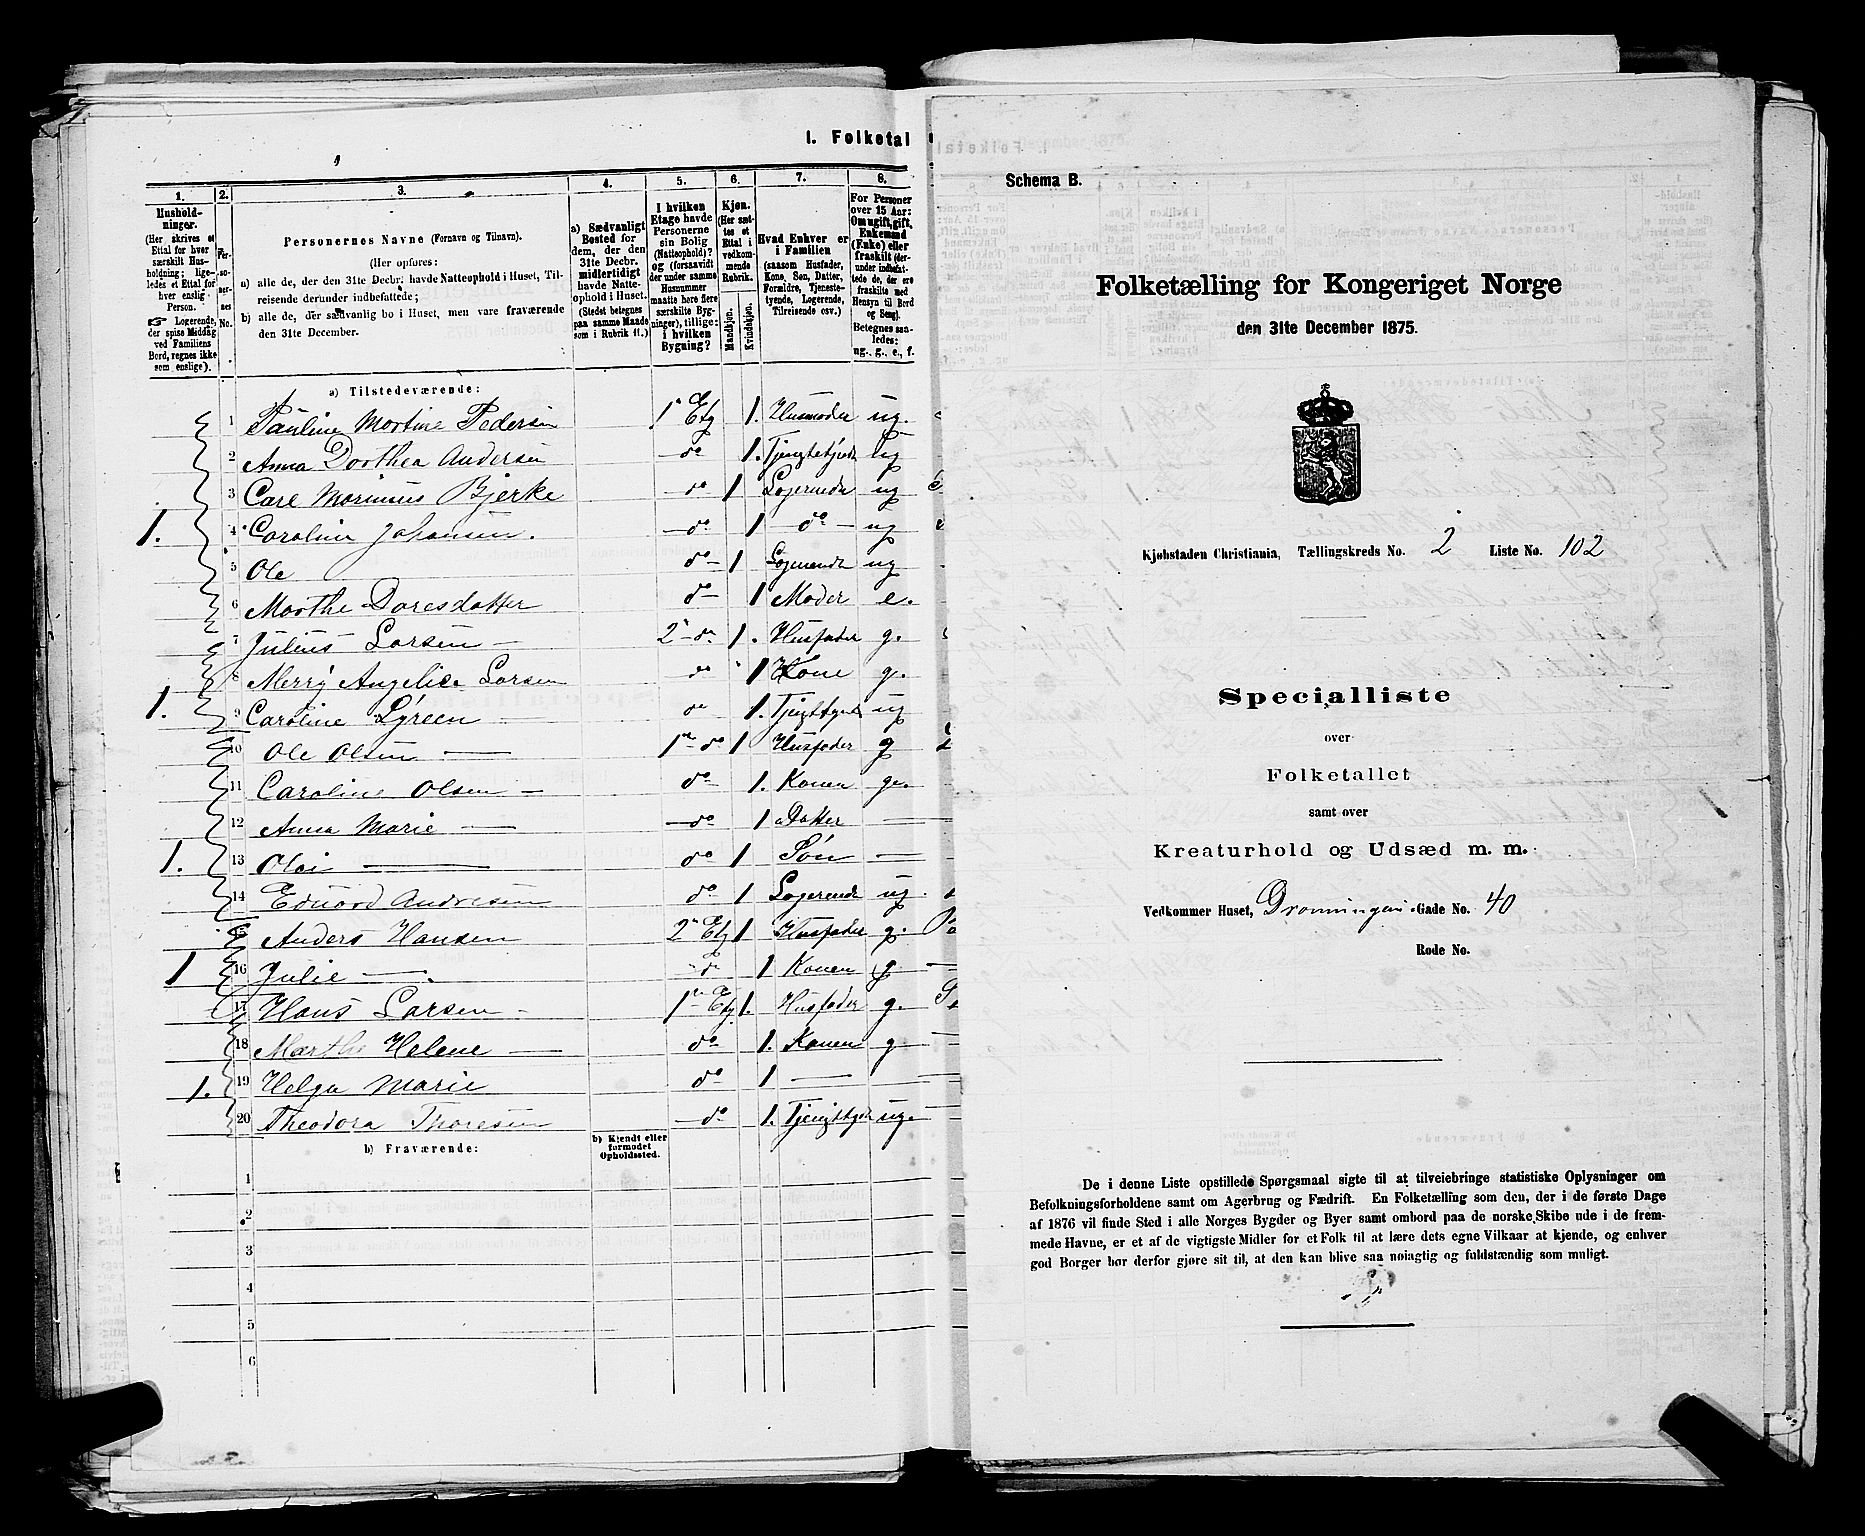 I. Folketal
1.
2.
3.
4.
5.
6.
7.
8.
Hushold-
ninger.
(Her skrives et
Ettal for hver
særskilt Hus-
holdning; lige-
ledes et Ettal for
hver enslig
Person.
☞ Logerende,
der spise Middag
ved Familiens
Bord, regnes ikke
som enslige).
Per-
so-
ner-
nes
No.
Personernes Navne (Fornavn og Tilnavn).
(Her opføres:
a) alle de, der den 31te Decbr. havde Natteophold i Huset, Til-
reisende derunder indbefattede;
b) alle de, der sædvanlig bo i Huset, men vare fraværende
den 31te December.
a) Sædvanligt
Bosted for
dem, der den
31te Decbr.
midlertidigt
havde Natte-
ophold i Huset.
(Stedet betegnes
paa samme Maade
som i Rubrik 11.)
I hvilken
Etage havde
Personerne
sin Bolig
(Natteophold)?
og (forsaavidt
der under samme
Husnummer
maatte høre flere
særskilte Byg-
ninger), tillige:
i hvilken
Bygning?
Kjøn.
(Her sæt-
tes et
Ettal i
vedkom-
mende
Rubrik.
Mandkjøn.
Kvindekjøn.
Hvad Enhver er
i Familien
(saasom Husfader,
Kone, Søn, Datter,
Forældre, Tjeneste-
tyende, Logerende,
Tilreisende osv.)
For Personer
over 15 Aar:
Om ugift, gift,
Enkemand
(Enke) eller
fraskilt (der-
under indbefat-
tede de, der ere
fraskilte med
Hensyn til Bord
og Seng).
Betegnes saa-
ledes:
ug., g., e., f.
a) Tilstedeværende:
1 Pauline Martine Pedersen 1 Etg 1. Husmoder ug.
2 Anna Dorthea Andersen do 1. ug
3 Carl Marinius Bjerke do 1 Logerende ug
1. 4 Caroline Johansen. do 1 do ug
5 Ole do 1 Logerende ug
6 Marthe Laresdatter do 1 Moder e.
7 Julius Larsen 2 do 1. Husfader g.
8 Merry Angelica Larsen do 1 Kone g.
1. 9 Caroline Lyreen do 1. ug
10 Ole Olsen 1 do 1 Husfader g
11 Caroline Olsen do 1. Konen g.
12 Anna Marie do 1 Datter
1. 13 Olai do 1 Søn
14 Eduard Andresen do 1 Logerende ug.
15 Anders Hansen 2 Etg 1 Husfader g.
1 16 Julie do 1 Konen g.
17 Hans Larsen 1 Etg 1. Husfader g.
18 Marthe Helene do 1. Konen g
1. 19 Helga Marie do 1
20 Theodora Thoresen do 1. ug.
b) Fraværende:
b) Kjendt eller
formodet
Opholdssted.
1
2
3
4
5
6
Schema B.
Folketælling for Kongeriget Norge
den 31te December 1875.
Kjøbstaden Christiania, Tællingskreds No. 2 Liste No. 102
Specialliste
over
Folketallet
samt over
Kreaturhold og Udsæd m. m.
Vedkommer Huset, Dronningens Gade No. 40
Rode No.
De i denne Liste opstillede Spørgsmaal sigte til at tilveiebringe statistiske Oplysninger om
Befolkningsforholdene samt om Agerbrug og Fædrift. En Folketælling som den, der i de første Dage
af 1876 vil finde Sted i alle Norges Bygder og Byer samt ombord paa de norske Skibe ude i de frem-
mede Havne, er et af de vigtigste Midler for et Folk til at lære dets egne Vilkaar at kjende, og enhver
god Borger bør derfor gjøre sit til, at den kan blive saa nøiagtig og fuldstændig som muligt.